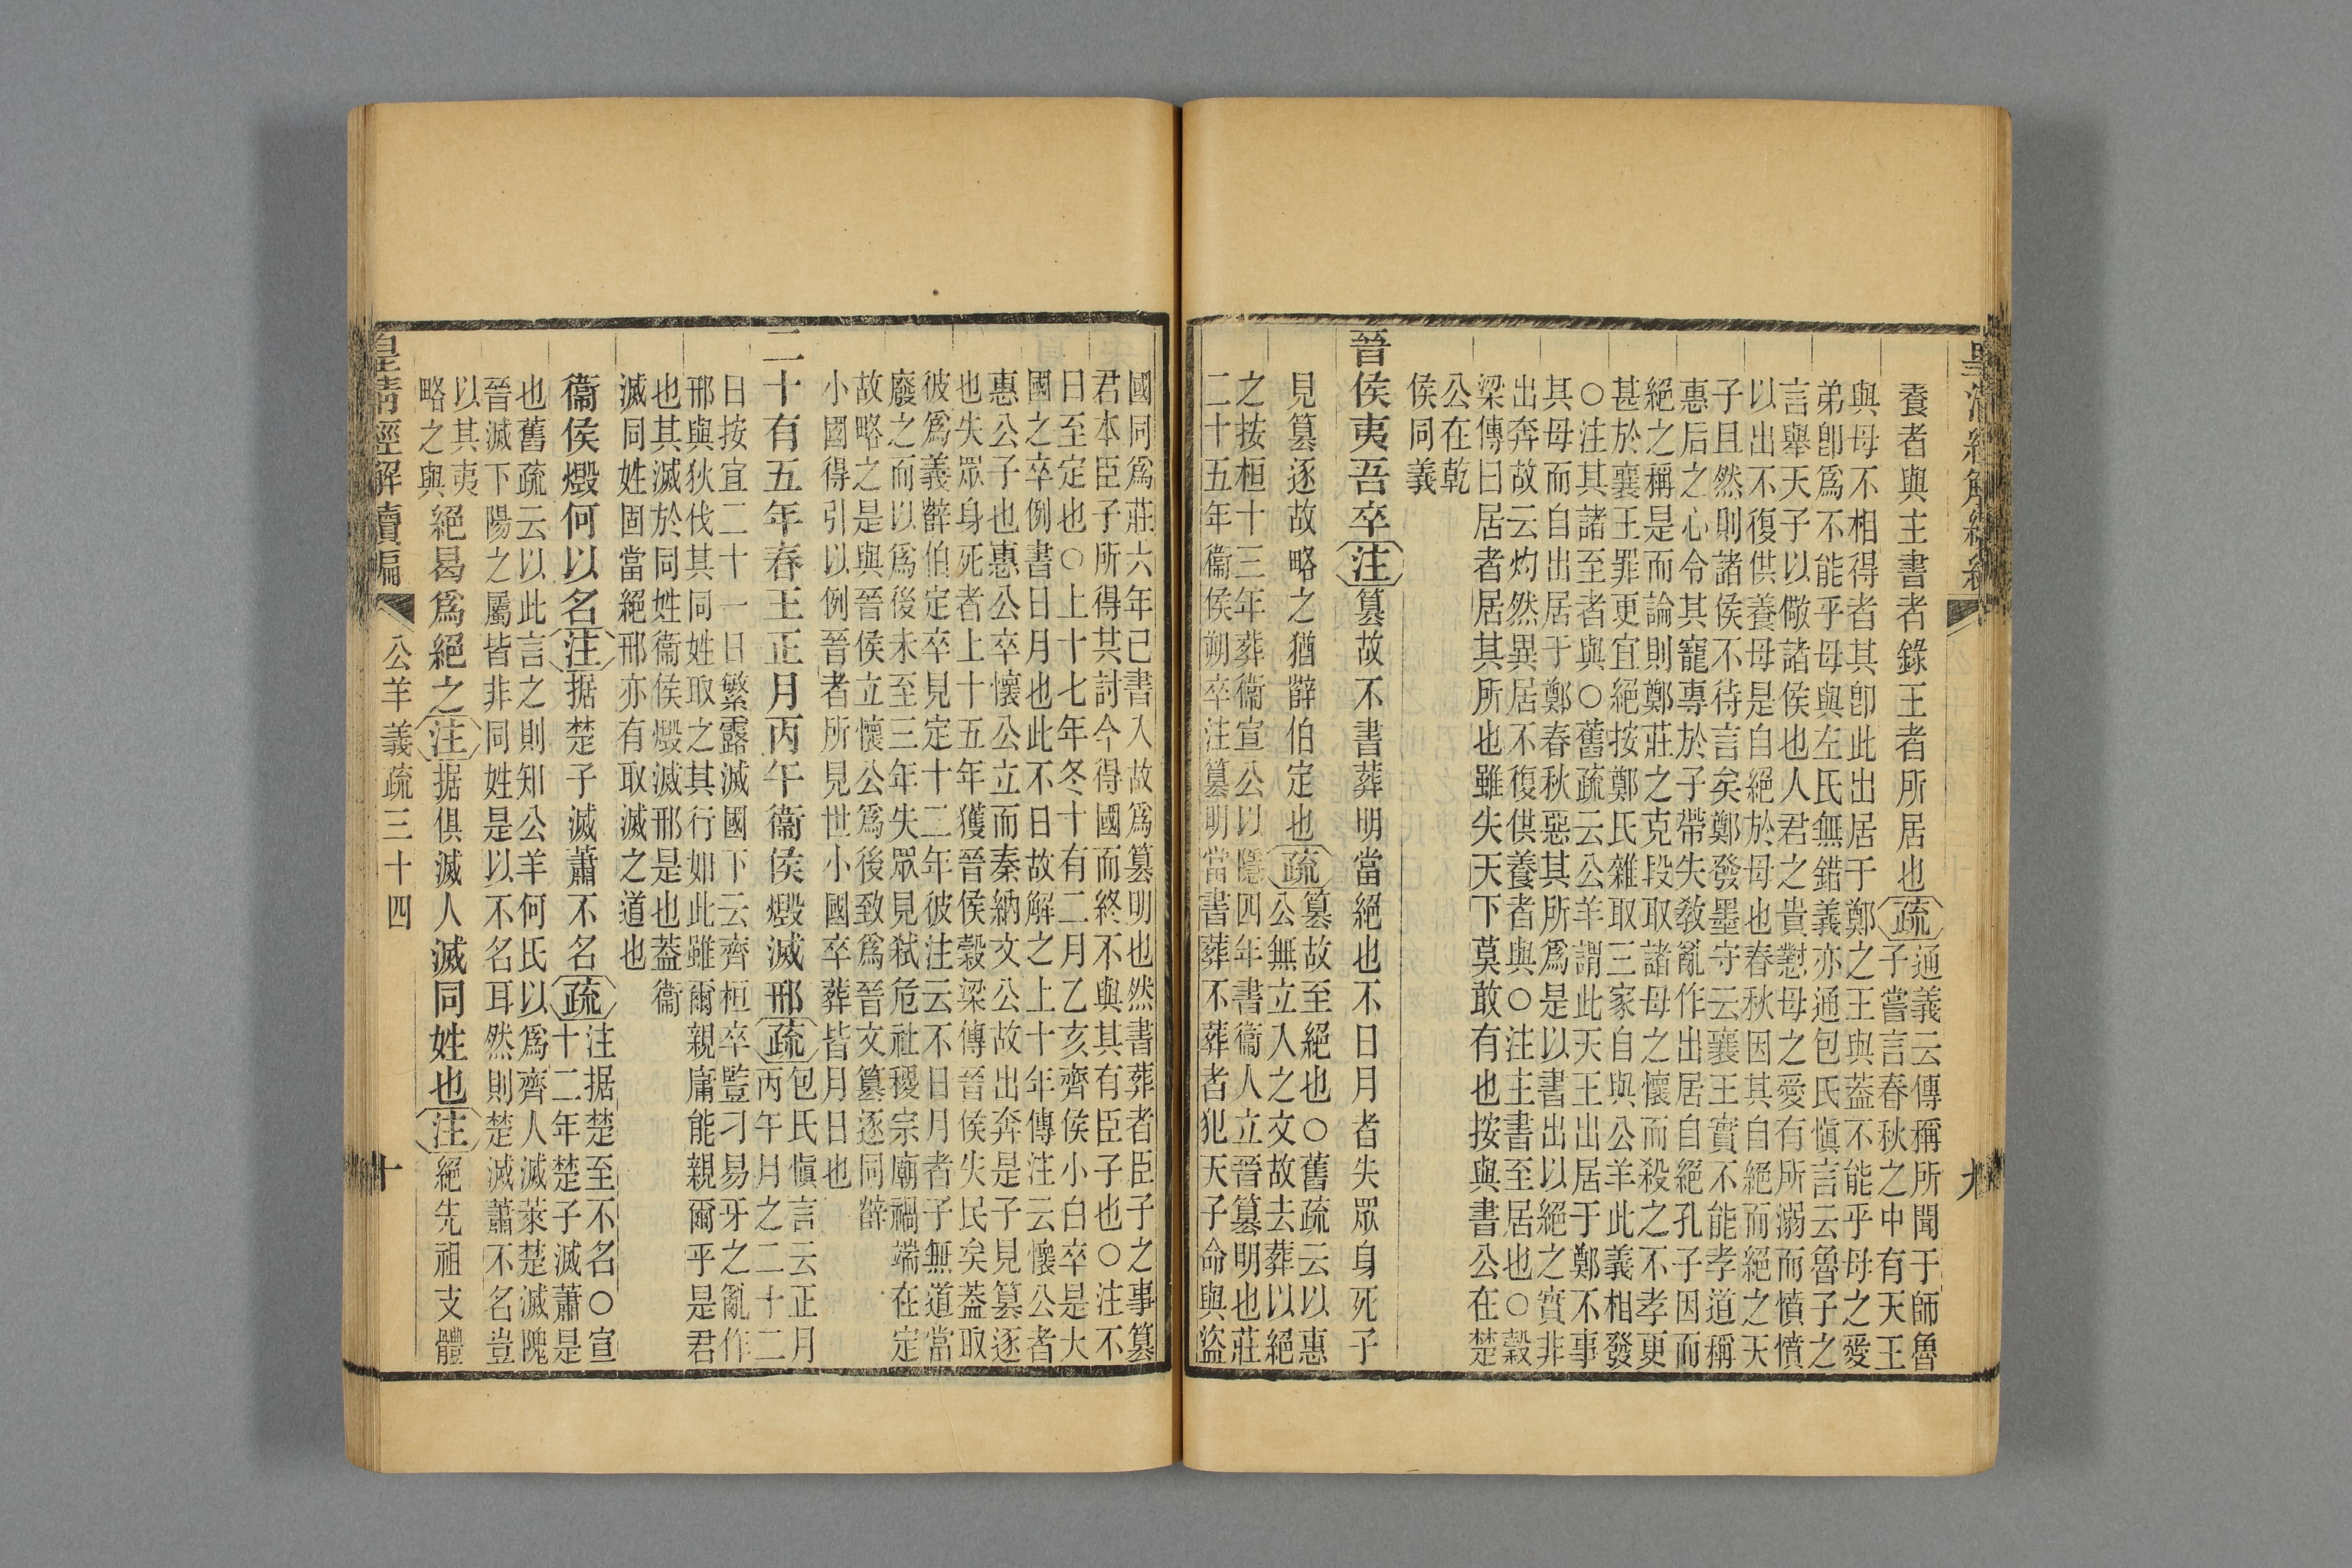 皇清經解續編
九
養者與主書者錄王者所居也疏通義云傳稱所聞于師魯
子嘗言春秋之中有天王
與母不相得者其卽此出居于鄭之王與葢不能乎母之愛
弟卽爲不能乎母與左氏無錯義亦通包氏愼言云魯子之
言舉天子以儆諸侯也人君之貴懟母之愛有所溺而憤憤
以出不復供養母是自絕於母也春秋因其自絕而絕之天
子且然則諸侯不待言矣鄭發墨守云襄王實不能孝道稱
惠后之心令其寵專於子帶失敎亂作出居自絕孔子因而
絕之稱是而論則鄭莊之克段取諸母之懷而殺之不孝更
甚於襄王罪更宜絕按鄭氏雜取三家自與公羊此義相發
○注其諸至者與○舊疏云公羊謂此天王出居于鄭不事
其母而自出居于鄭春秋惡其所爲是以書出以絕之實非
出奔故云灼然異居不復供養者與○注主書至居也○穀
梁傳曰居者居其所也雖失天下莫敢有也按與書公在楚
公在乾
侯同義
晉侯夷吾卒注篡故不書葬明當絕也不日月者失眾身死子
見篡逐故略之猶薛伯定也疏篡故至絕也○舊疏云以惠
公無立入之文故去葬以絕
之按桓十三年葬衞宣公以隱四年書衞人立晉篡明也莊
二十五年衞侯朔卒注篡明當書葬不葬者犯天子命與盜
國同爲莊六年已書入故爲篡明也然書葬者臣子之事篡
君本臣子所得其討今得國而終不與其有臣子也○注不
日至定也○上十七年冬十有二月乙亥齊侯小白卒是大
國之卒例書日月也此不日故解之上十年傳注云懷公者
惠公子也惠公卒懷公立而秦納文公故出奔是子見篡逐
也失眾身死者上十五年獲晉侯穀梁傳晉侯失民矣葢取
彼爲義薛伯定卒見定十二年彼注云不日月者子無道當
廢之而以爲後未至三年失眾見弒危社稷宗廟禍端在定
故略之是與晉侯立懷公爲後致爲晉文篡逐同薛
小國得引以例晉者所見世小國卒葬皆月日也
二十有五年春王正月丙午衞侯燬滅邢疏包氏愼言云正月
丙午月之二十二
日按宜二十一日繁露滅國下云齊桓卒豎刁易牙之亂作
邢與狄伐其同姓取之其行如此雖爾親庸能親爾乎是君
也其滅於同姓衞侯燬滅邢是也葢衞
滅同姓固當絕邢亦有取滅之道也
衞侯燬何以名注据楚子滅蕭不名疏注据楚至不名○宣
十二年楚子滅蕭是
也舊疏云以此言之則知公羊何氏以爲齊人滅萊楚滅隗
晉滅下陽之屬皆非同姓是以不名耳然則楚滅蕭不名豈
以其夷
略之與
絕曷爲絕之注据俱滅人滅同姓也注絕先祖支體
皇清經解續編
公羊義疏三十四
十